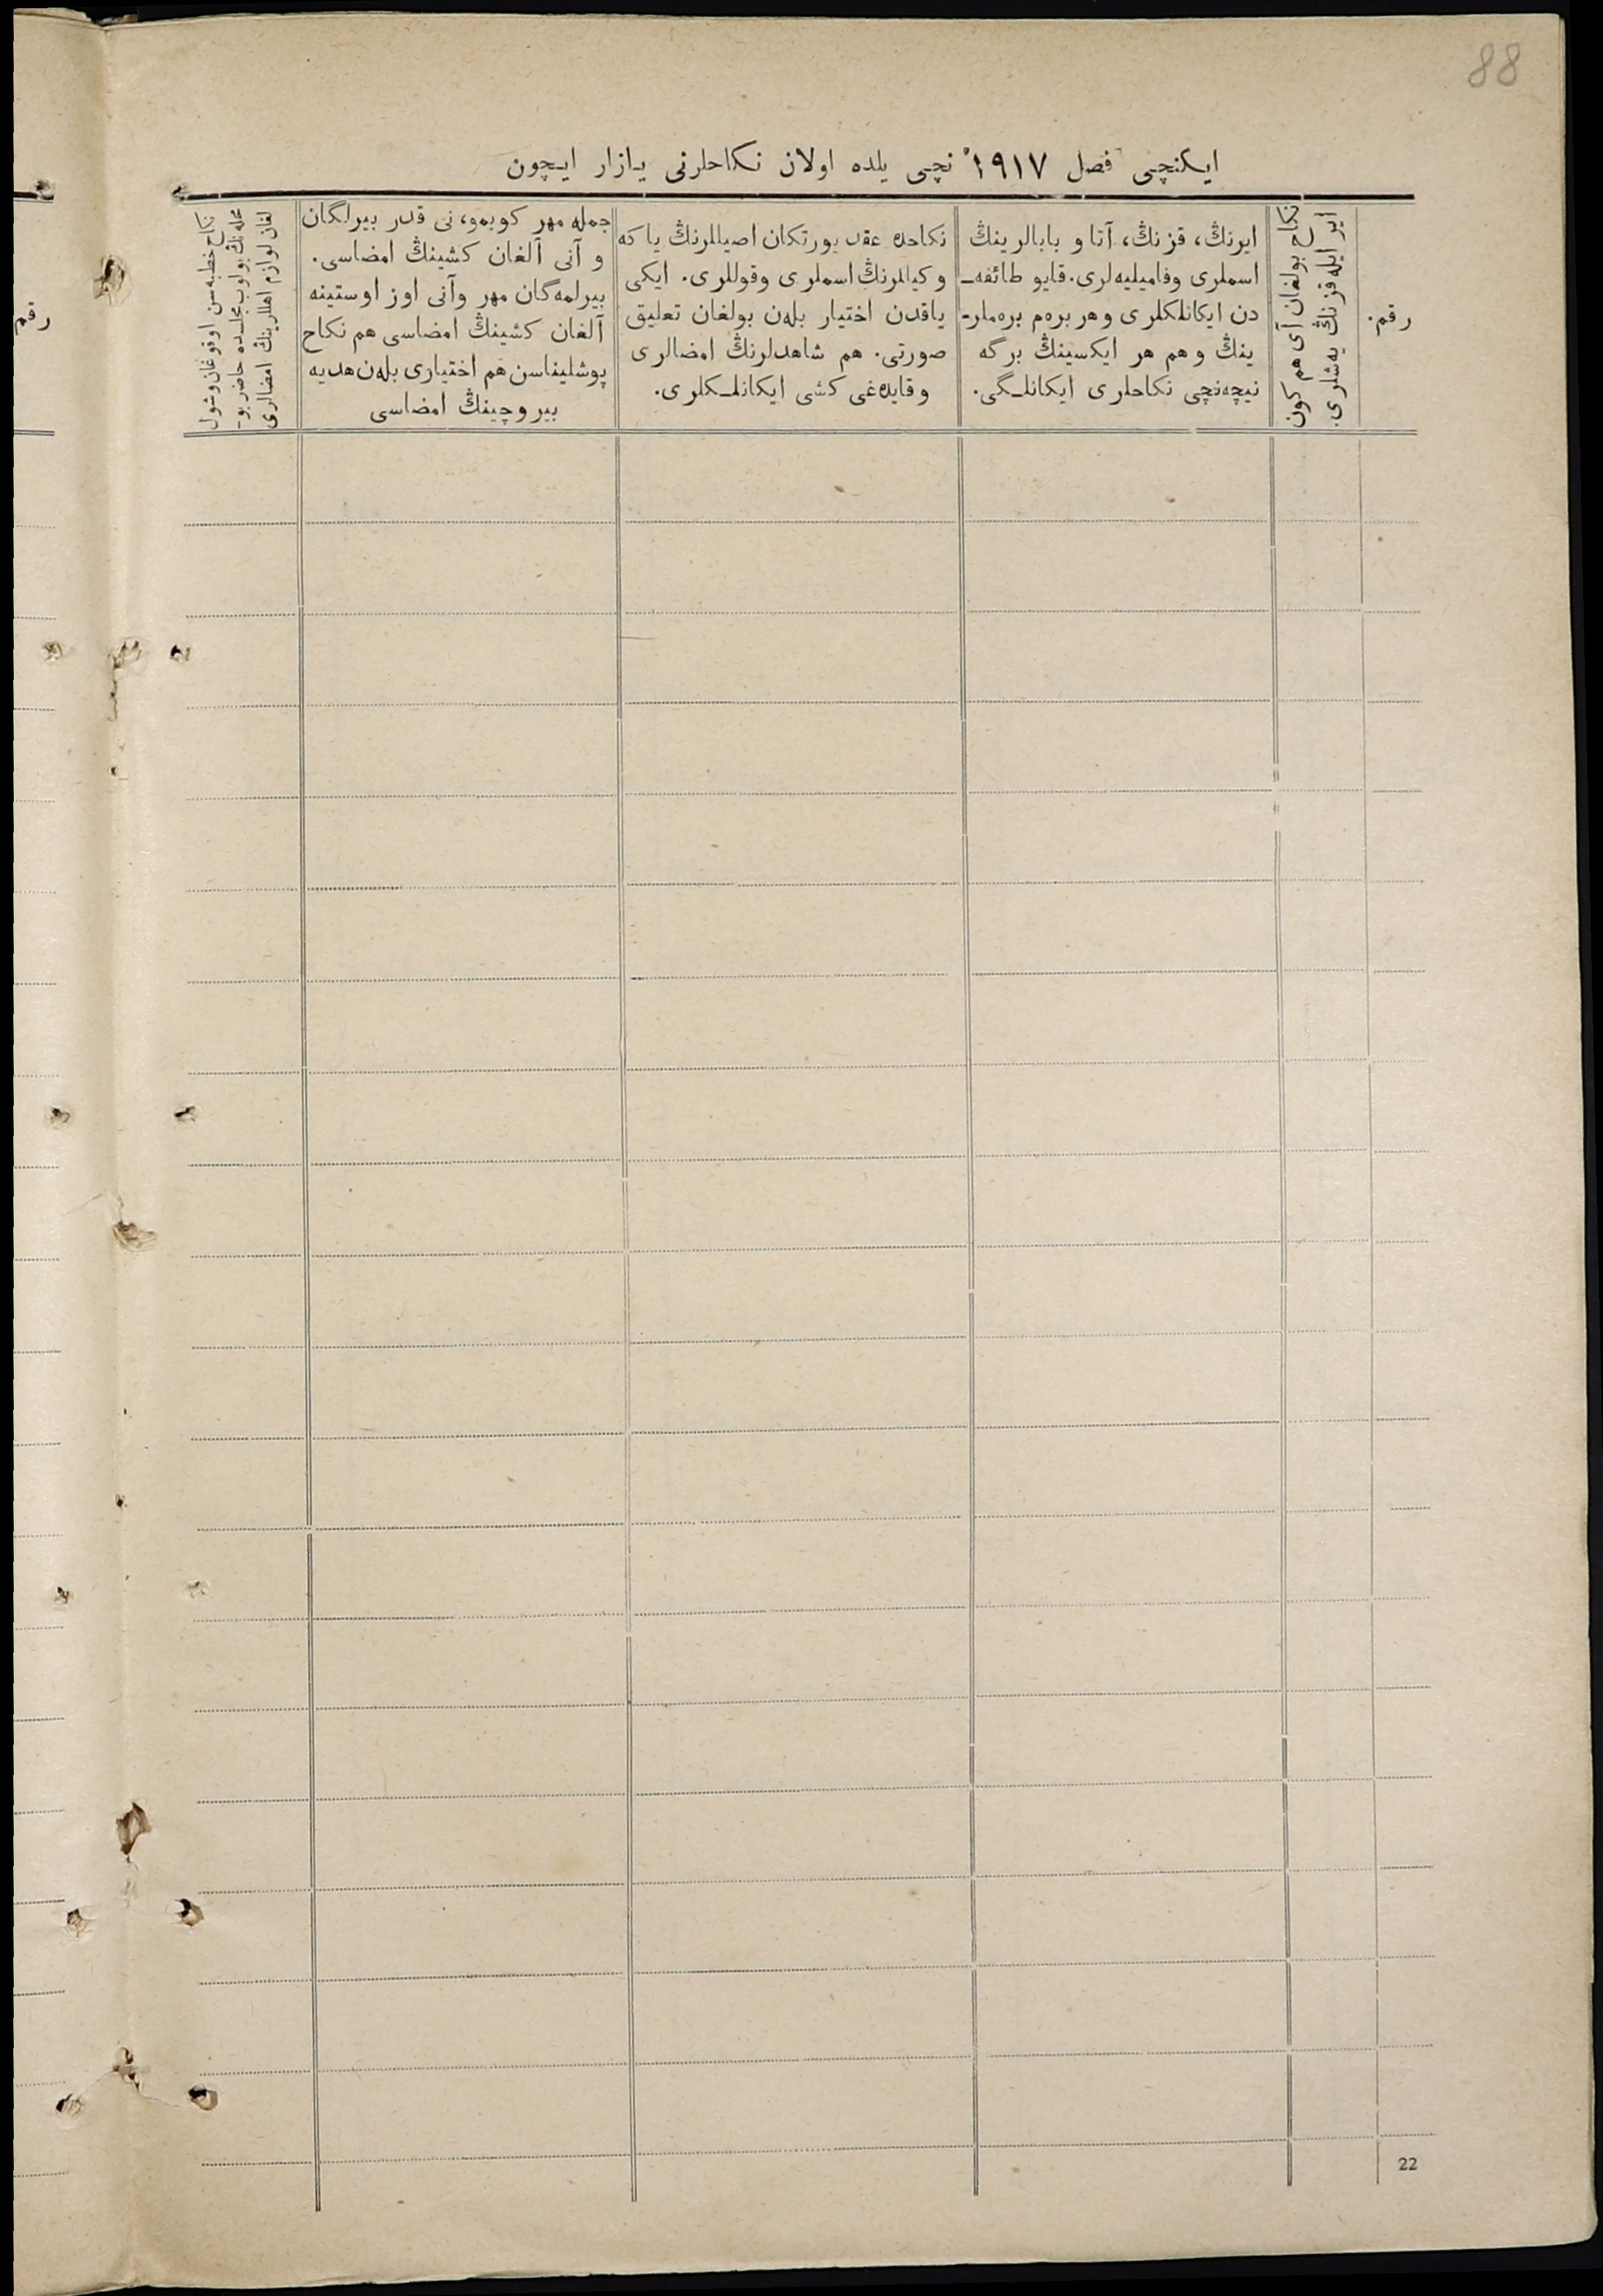 88
ایکنچی فصل ۱۹۱۷ نچی یلده اولان نکاحلرنی یازار ایچون
رقم.
ایر ایله قزنڭ یه‌شلری.
نکاح بولغان آی هم کون
ایرنڭ، قزنڭ، آتا و بابالرینڭ
اسملری وفامیلیه‌لری. قایو طائفه‌ـ
دن ایکانلکلری وهر بره‌م بره‌ملرـ
ینڭ وهم هر ایکسینڭ برگه
نیچه‌نچی نکاحلری ایکانلـگی.
نکاحده عقد یورتکان اصیللرنڭ یا که
وکیللرنڭ اسملری وقوللری. ایکی
یاقدن اختیار بلەن بولغان تعلیق
صورتی. هم شاهدلرنڭ امضالری
وقایده‌غی کشی ایکانلـکلری.
جمله مهر کوبمو، نی قدر بیرلگان
و آنی آلغان کشینڭ امضاسی.
بیرلمه‌گان مهر وآنی اوز اوستینه
آلغان کشینڭ امضاسی هم نکاح
پوشلیناسن هم اختیاری بلەن هدیه
بیروچینڭ امضاسی
نکاح خطبه سن اوقوغان وشول
محله‌نڭ بولوب مجلسده حاضر بوـ
لغان لوازم اهللرینڭ امضالری
رقم
22